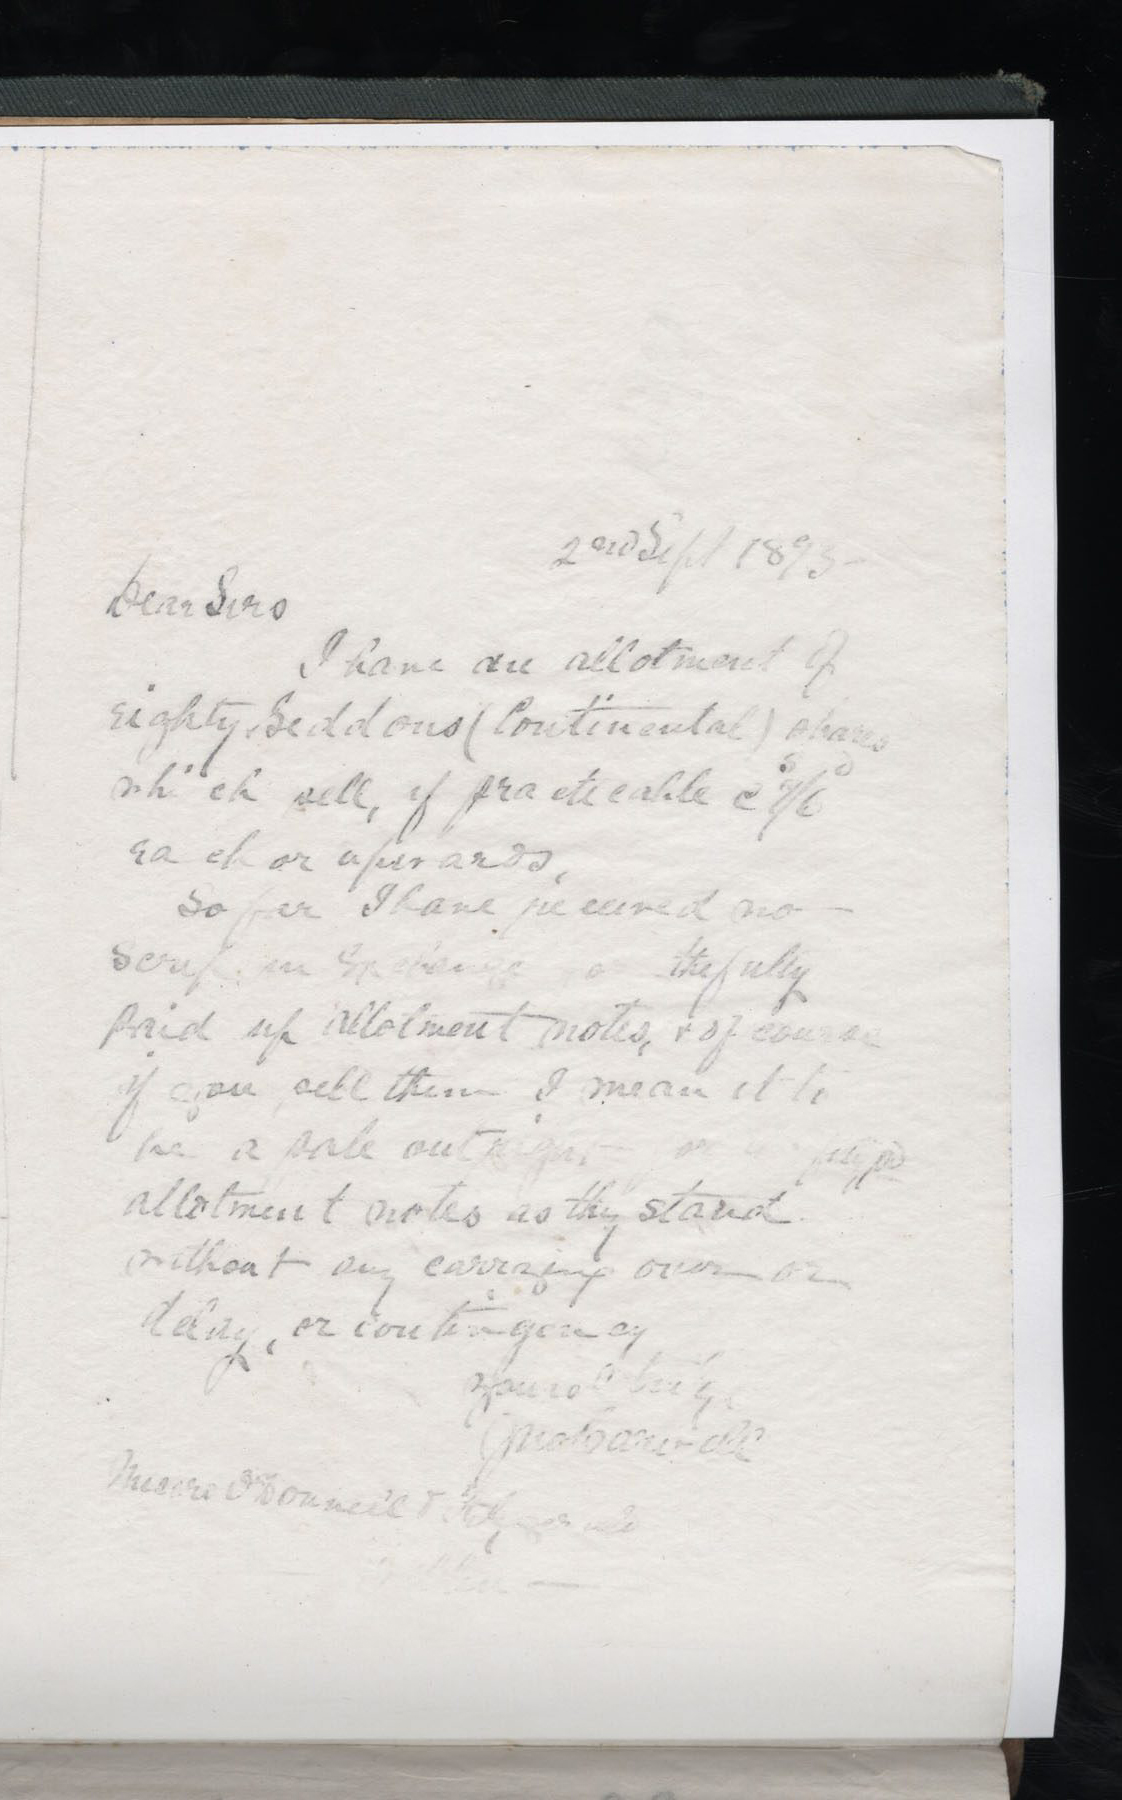 2nd Sept 1895
Dear Sirs
I have an allotment of
eighty, Seddons (Continental) shares
which sell, if practicable @
each or upwards,
So far I have received no
scrip in Exchange the fully
paid up allotment notes, & of course
if you sell them I mean it to
be a sale outright
allotment notes as they stand
without any carrying over or
delay, or contingency
Messrs O'Donnell & Fitzgerald
Dublin